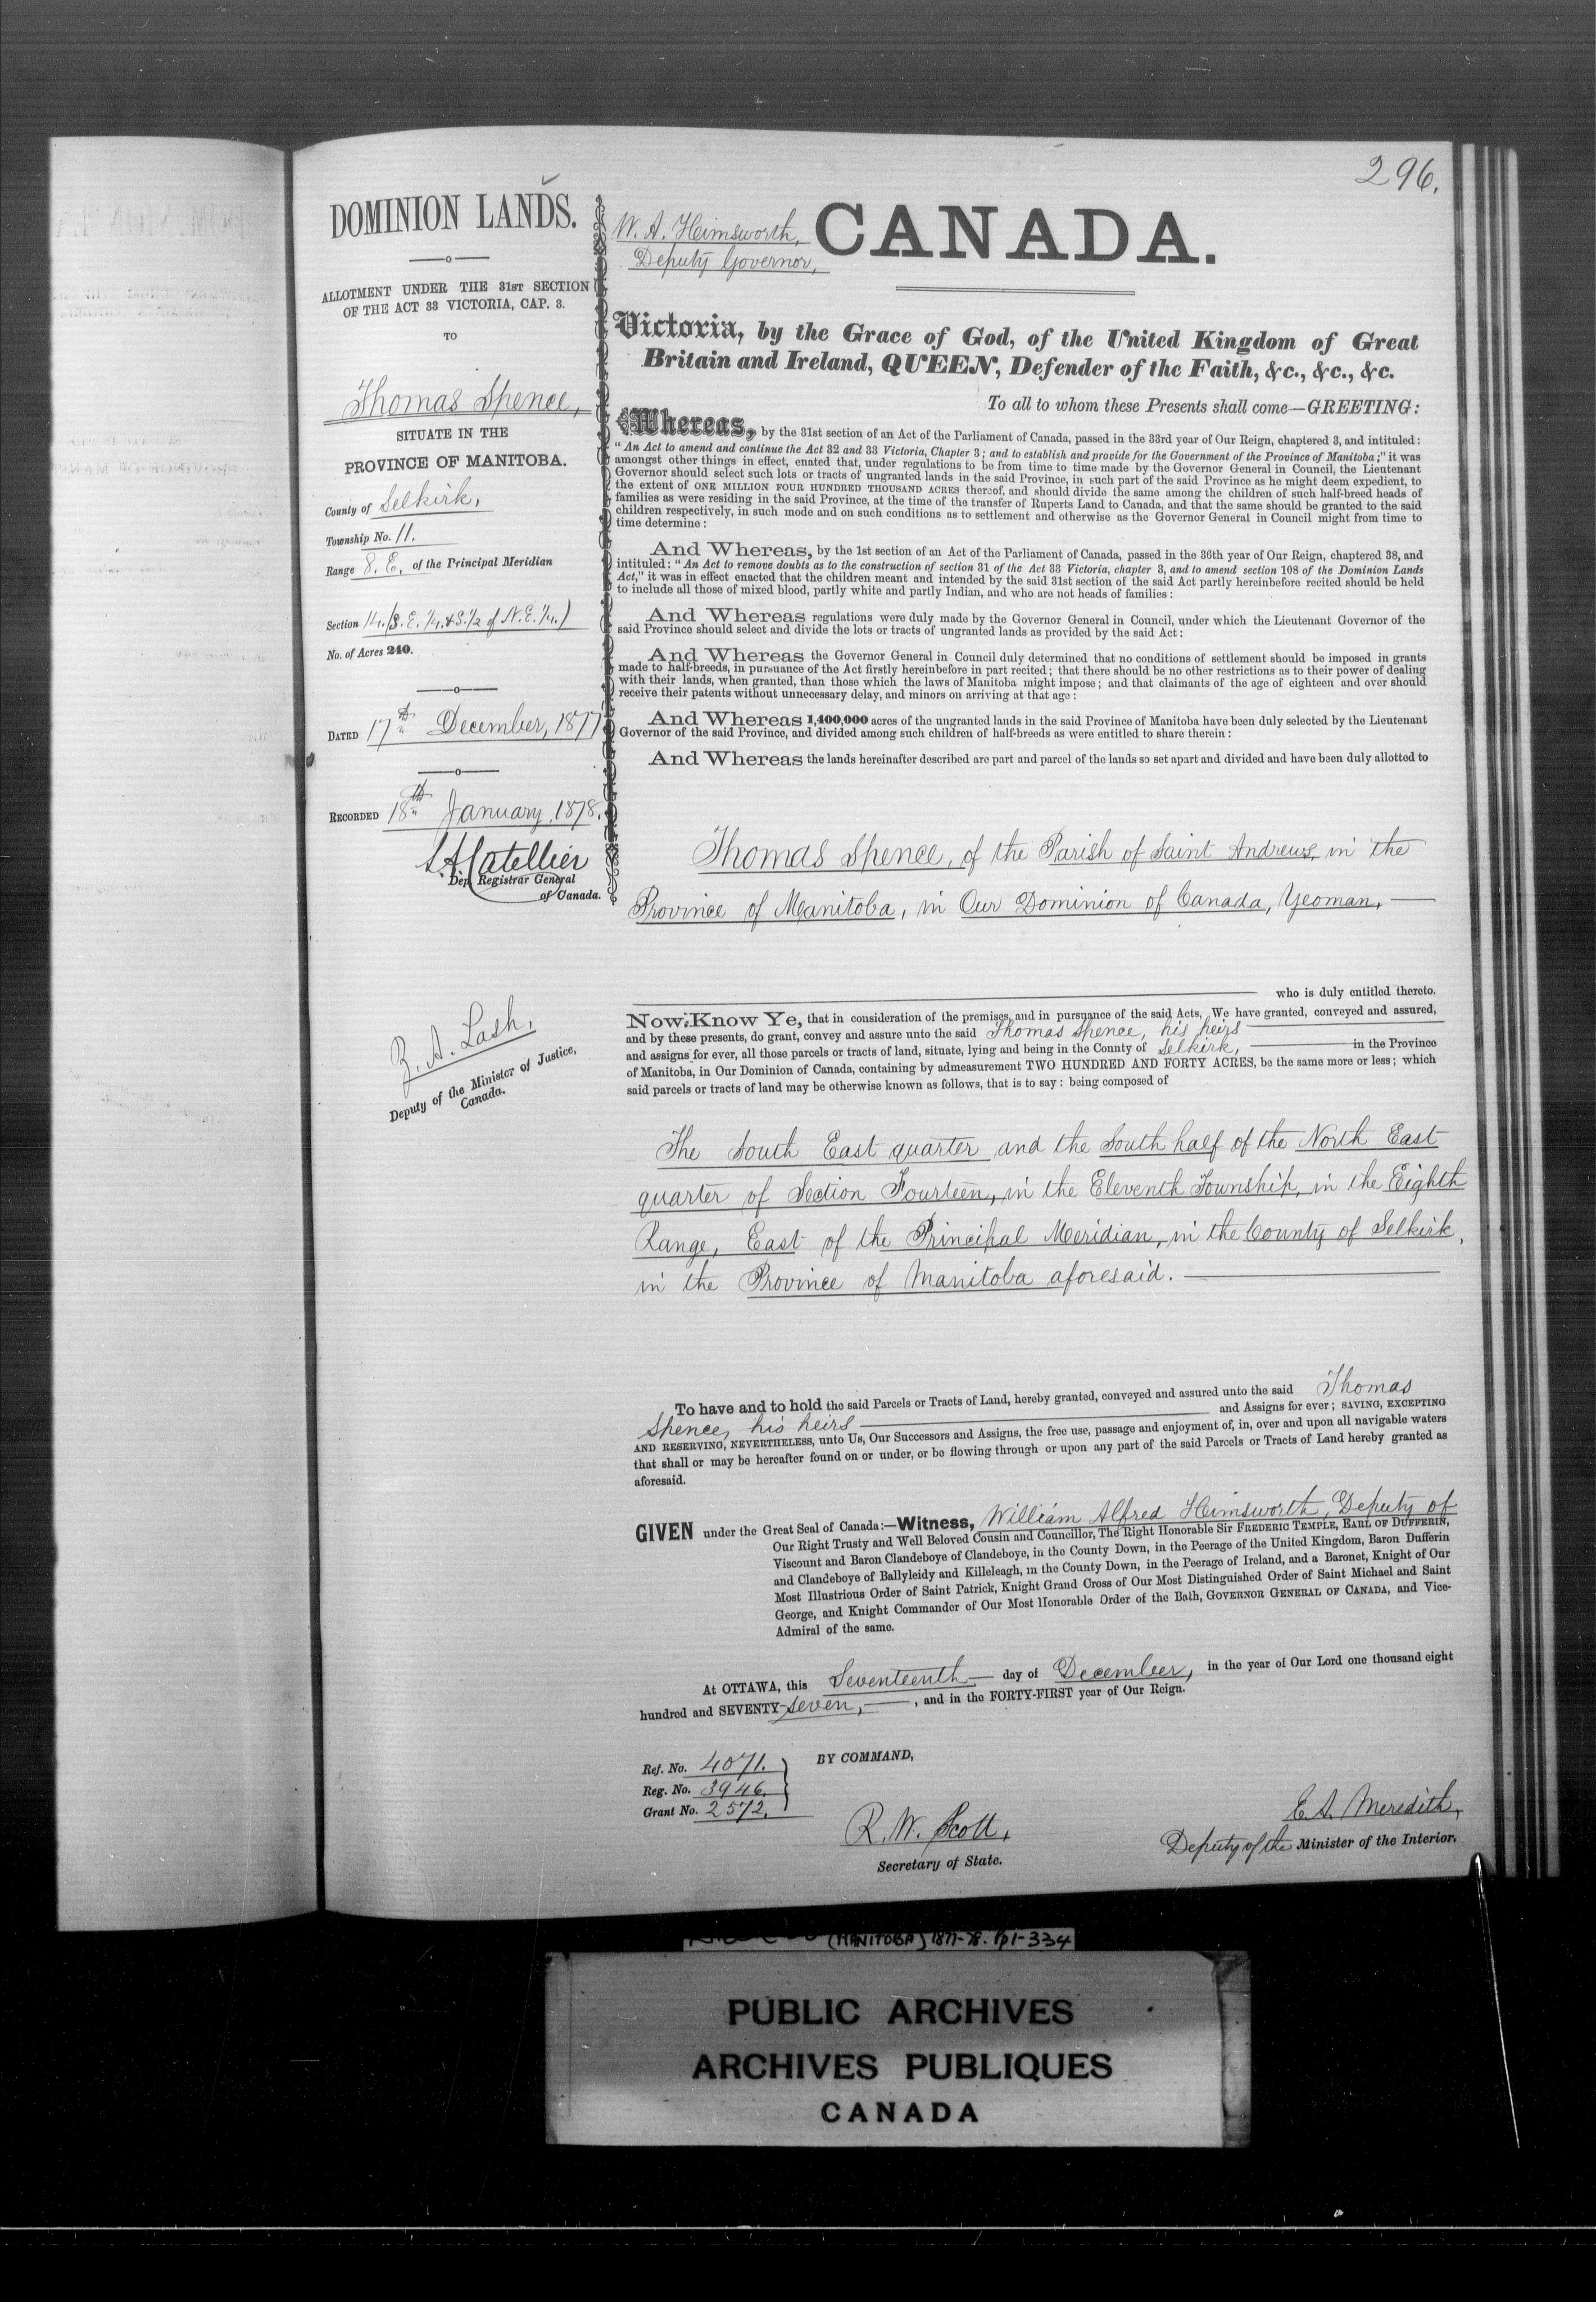 296.
DOMINION LANDS.
ALLOTMENT UNDER THE 31ST SECTION
OF THE ACT 33 VICTORIA, CAP. 3.
TO
Thomas Spence,
SITUATE IN THE
PROVINCE OF MANITOBA.
County of Selkirk,
Township No. 11.
Range 8. E. of the Principal Meridian
Section 14. (S. E. 1/4. & S. 1/2 of N. E. 1/4.)
No. of Acres 240.
DATED 17th December, 1877
RECORDED 18th January, 1878.
Dep. Registrar General
of Canada.
Z. A. Lash,
Deputy of the Minister of Justice,
Canada.
W. A. Himsworth,
Deputy Governor,
CANADA.
Victoria, by the Grace of God, of the United Kingdom of Great
Britain and Ireland, QUEEN, Defender of the Faith, &c., &c., &c.
To all to whom these Presents shall come—GREETING:
Whereas, by the 31st section of an Act of the Parliament of Canada, passed in the 33rd year of Our Reign, chaptered 3, and intituled:
"An Act to amend and continue the Act 32 and 33 Victoria, Chapter 3; and to establish and provide for the Government of the Province of Manitoba;" it was
amongst other things in effect, enated that, under regulations to be from time to time made by the Governor General in Council, the Lieutenant
Governor should select such lots or tracts of ungranted lands in the said Province, in such part of the said Province as he might deem expedient, to
the extent of ONE MILLION FOUR HUNDRED THOUSAND ACRES thereof, and should divide the same among the children of such half-breed heads of
families as were residing in the said Province, at the time of the transfer of Ruperts Land to Canada, and that the same should be granted to the said
children respectively, in such mode and on such conditions as to settlement and otherwise as the Governor General in Council might from time to
time determine:
And Whereas, by the 1st section of an Act of the Parliament of Canada, passed in the 36th year of Our Reign, chaptered 38, and
intituled: "An Act to remove doubts as to the construction of section 31 of the Act 33 Victoria, chapter 3, and to amend section 108 of the Dominion Lands
Act," it was in effect enacted that the children meant and intended by the said 31st section of the said Act partly hereinbefore recited should be held
to include all those of mixed blood, partly white and partly Indian, and who are not heads of families:
And Whereas regulations were duly made by the Governor General in Council, under which the Lieutenant Governor of the
said Province should select and divide the lots or tracts of ungranted lands as provided by the said Act:
And Whereas the Governor General in Council duly determined that no conditions of settlement should be imposed in grants
made to half-breeds, in pursuance of the Act firstly hereinbefore in part recited; that there should be no other restrictions as to their power of dealing
with their lands, when granted, than those which the laws of Manitoba might impose; and that claimants of the age of eighteen and over should
receive their patents without unnecessary delay, and minors on arriving at that age:
And Whereas 1,400,000 acres of the ungranted lands in the said Province of Manitoba have been duly selected by the Lieutenant
Governor of the said Province, and divided among such children of half-breeds as were entitled to share therein:
And Whereas the lands hereinafter described are part and parcel of the lands so set apart and divided and have been duly allotted to
Thomas Spence, of the Parish of Saint Andrews, in the
Province of Manitoba, in Our Dominion of Canada, Yeoman, —
who is duly entitled thereto.
Now Know Ye, that in consideration of the premises, and in pursuance of the said Acts, We have granted, conveyed and assured,
and by these presents, do grant, convey and assure unto the said Thomas Spence, his heirs
and assigns for ever, all those parcels or tracts of land, situate, lying and being in the County of Selkirk, in the Province
of Manitoba, in Our Dominion of Canada, containing by admeasurement TWO HUNDRED AND FORTY ACRES, be the same more or less; which
said parcels or tracts of land may be otherwise known as follows, that is to say: being composed of
The South East quarter and the South half of the North East
quarter of Section Fourteen, in the Eleventh Township, in the Eighth
Range, East of the Principal Meridian, in the County of Selkirk,
in the Province of Manitoba aforesaid.
To have and to hold the said Parcels or Tracts of Land, hereby granted, conveyed and assured unto the said Thomas
Spence, his heirs and Assigns for ever; SAVING, EXCEPTING
AND RESERVING, NEVERTHELESS, unto Us, Our Successors and Assigns, the free use, passage and enjoyment of, in, over and upon all navigable waters
that shall or may be hereafter found on or under, or be flowing through or upon any part of the said Parcels or Tracts of Land hereby granted as
aforesaid.
GIVEN under the Great Seal of Canada:—Witness, William Alfred Himsworth, Deputy of
Our Right Trusty and Well Beloved Cousin and Councillor, The Right Honorable Sir FREDERIC TEMPLE, EARL OF DUFFERIN,
Viscount and Baron Clandeboye of Clandeboye, in the County Down, in the Peerage of the United Kingdom, Baron Dufferin
and Clandeboye of Ballyleidy and Killeleagh, in the County Down, in the Peerage of Ireland, and a Baronet, Knight of Our
Most Illustrious Order of Saint Patrick, Knight Grand Cross of Our Most Distinguished Order of Saint Michael and Saint
George, and Knight Commander of Our Most Honorable Order of the Bath, GOVERNOR GENERAL OF CANADA, and Vice-
Admiral of the same.
At OTTAWA, this Seventeenth day of December, in the year of Our Lord one thousand eight
hundred and SEVENTY-seven, and in the FORTY-FIRST year of Our Reign.
Ref. No. 4071.
Reg. No. 3946.
Grant No. 2572.
BY COMMAND,
R. W. Scott,
Secretary of State.
E. A. Meredith,
Deputy of the Minister of the Interior.
(MANITOBA) 1877-78. pp1-334
PUBLIC ARCHIVES
ARCHIVES PUBLIQUES
CANADA